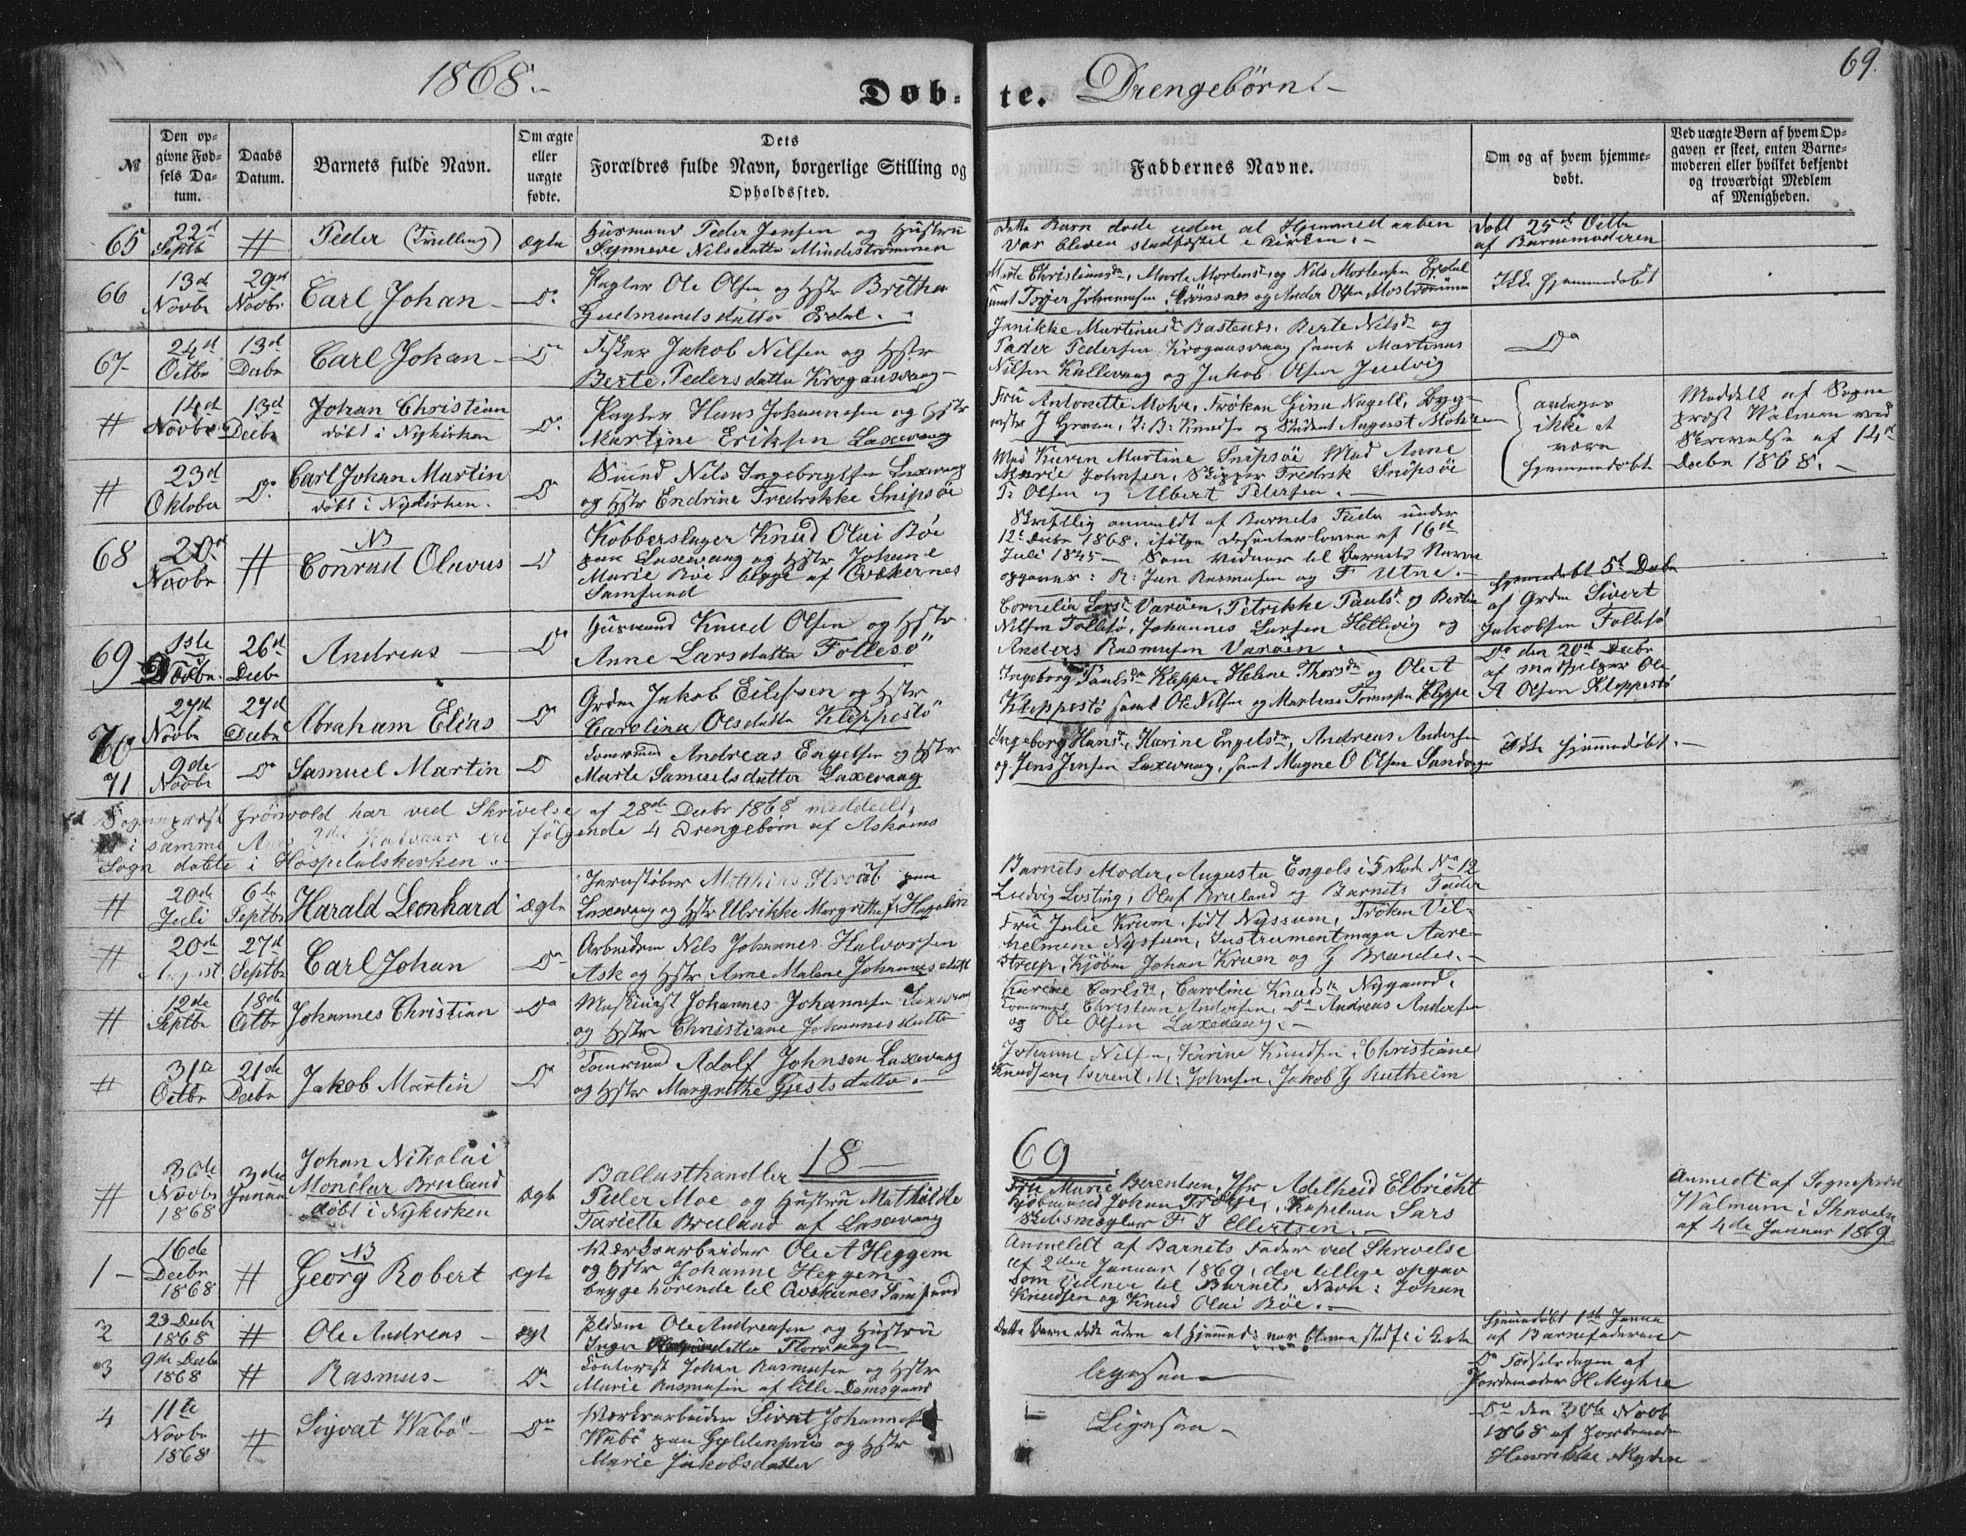 1868.
Døb-te. Drengebørn.
69.
№
Den opgivne Fødsels Datum.
Daabs Datum.
Barnets fulde Navn.
Om ægte eller uægte fødte.
Dets Forældres fulde Navn, borgerlige Stilling og Opholdssted.
Faddernes Navne.
Om og af hvem hjemmedøbt.
Ved uægte Børn af hvem Opgaven er skeet, enten Barnemoderen eller hvilket bekjendt og troværdigt Medlem af Menigheden.
65
22d Septb
#
Peder (Tvilling)
ægte
Husmand Peder Jensen og Hustru
Synneve Nilsdatter Mindestrømmen
Dette Barn døde uden at Hjemmedaaben
var bleven stadfæstet i Kirken.
døbt 25d Octbr
af Barnemoderen
66
13d Novbr
29d Novbr
Carl Johan
Do
Ole Olsen og Hstr Britha
Gudmundsdatter Erdal.
Marte Christiansdr, Marte Mortensdr og Nils Mortensen Erdal
samt Johannesen Strømsnes og Ander Olsen
Ikke hjemmedøbt
67
24d Octbr
13d Decbr
Carl Johan
Do
Fisker Jakob Nilsen og Hstr
Berte Pedersdatter Krogaasvaag
Janikke Martinusdr Bastenes, Berte Nilsdr og
Peder Pedersen Krogaasvaag samt Martinus
Nilsen Kallevaag og Jakob Olsen
Do
#
14d Novbr
13d Decbr
Johan Christian
døbt i Nykirken
Do
Hans Johannesen og Hstr
Martine Eriksen Laxevaag
Fru Antonette Mohr, Frøken Gina Nagell,
J Green, D. B. Knudsen og Student August Mohr
antages
ikke at
være
hjemmedøbt
Meddelt af Sogne
prost Walman ved
Skrivelse af 14d
Decbr 1868.
#
23d Oktober
Do
Carl Johan Martin
døbt i Nykirken.
Do
Smed Nils Ingebrigtsen Laxevaag
og Hstr Endrine Fredrikke Snipsøe
Mad Karen Martine Snipsøe Mad Anne
Marie Johnsen, Skipper Fredrik Snipsøe
P Olsen og Albert Petersen.
68
20d Novbr
#
NB
Conrad Olavus
Do
Kobberslager Knud Olai Bøe
paa Laxevaag og Hstr Johane
Marie Bøe begge af Qvækernes
Samfund
Skriftlig anmeldt af Barnets Fader under
12te Decbr 1868, ifølge Dissenterloven af 16d
Juli 1845 Som Vidner til Barnets Navn
opgaves: R: Jan Rasmusen og F Utne.
69
1ste Novbr
26d Decbr
Andreas
Do
Husmand Knud Olsen og Hstr
Anne Larsdatter Follesø
Cornelia Larsdr Varøen, Petrikke Paulsdr og Bertin
Nilsen Follesø, Johannes Larsen Hetlevig og
Anders Rasmusen Varøen.
hjemmedøbt 5d Decbr
af Grdm Sivert
Jakobsen Follesø
70
27d Novbr
27d Decbr
Abraham Elias
Do
Grdm Jakob Eilefsen og Hstr
Carolina Olsdatter Kleppestø
Ingeborg Paulsdr Kleppe, Helene Thorsdr og Ole A
Kleppestø samt Ole Nilsen og Martens Kleppe
Do den 20d Decbr
af Ole
A Olsen Kleppestø
71
9de Novbr
Do
Samuel Martin
Do
Tømmrmd Andreas Engelsen og Hstr
Marte Samuelsdatter Laxevaag
Ingeborg Hansdr, Karine Engelsdr, Andreas Andersen
og Jens Jensen Laxevaag, samt Magne O Olsen
Ikke hjemmedøbt.
Sogneprest Grönvold har ved Skrivelse af 28de Decbr 1868 meddeelt,
at i samme Aars følgende 4 Drengebørn af Askøens
Sogn døbte i Hospitalskirken.
#
20de Juli
6te Septbr
Harald Leonhard
ægte
Jernstøber Matthias Stroob paa
Laxevaag og Hstr Ulrikke Margrethe f. Hagelin
Barnets Moder, Augusta Engels i 5 Rod No 12
Ludvig Losting, Oluf Bruland og Barnets Fader
#
20de August
27d Septbr
Carl Johan
Do
Arbeidsm Nils Johannes Halvorsen
Ask og Hstr Anne Malene Johannesdatt
Fru Julie Krum født Nyssum, Frøken Vil-
helmine Nyssum, Instrumentmager Aare-
strup, Kjøbm Johan Krum og G Brandes.
#
12de Septbr
18de Octbr
Johannes Christian
Do
Maskinist Johannes Johannesen Laxevaag
og Hstr Christiane Johannesdatter
Karine Carlsdr, Caroline Knudsdr Nygaard,
Tømmrmd Christian Andersen, Do Andreas Andersen
og Ole Olsen Laxevaag.
#
31te Octbr
21de Decbr
Jakob Martin
Do
Tømrmd Adolf Johnsen Laxevaag
og Hstr Margrethe Gjestsdatter.
Johanne Nilsen, Karine Knudsen, Christiane
Knudsen, Berent M: Johnsen, Jakob G Rutheim
18
69
#
30de Novbr 1868
3die Januar
Johan Nikolai
Monclar Bruland
døbt i Nykirken
ægte
Ballasthandler
Peder Moe og Hustru Mathilde
Tariette Bruland af Laxevaag
Fru Marie Berentsen, Jfr Adelheid Elbricht
Kjøbmand Johan Frölje, Kapelan Sars
Skibsmægler F J Ellertsen.
Anmeldt af Sogneprest
Walman i Skrivelse
af 4de Januar 1869
1
16de Decbr 1868
#
NB
Georg Robert
ægte
Værksarbeider Ole A Heggem
og Hstr Johanne Heggem
begge hørende til Qvækernes Samfund
Anmeldt af Barnets Fader ved Skrivelse
af 2den Januar 1869, der tillige opgav
som Vidner til Barnets Navn: Johan
Knudsen og Knud Olai Bøe.
2
23 Decbr 1868
#
Ole Andreas
ægte
Ole Andreasen og Hustru
Inger Florvaag
Dette Barn døde uden at Hjemmed: var bleven stadf: i Kirke
hjemmedøbt 1st Janua
af Barnefaderen
3
9de Decbr 1868
#
Rasmus
Do
Contorist Johan Rasmusen og Hstr
Marie Rasmusen af lille Damsgaard
Ligesaa
Do Fødselsdagen af
Jordemoder H. Myhre
4
11te Novbr 1868
#
Sigvat Wabö
Do
Værksarbeider Sivert Johannesen
Wabö paa Gyldenpriis og Hstr
Marie Jakobsdatter
Ligesaa
Do den 30te Novb
1868 af Jordemoder
Henrikke Myhre